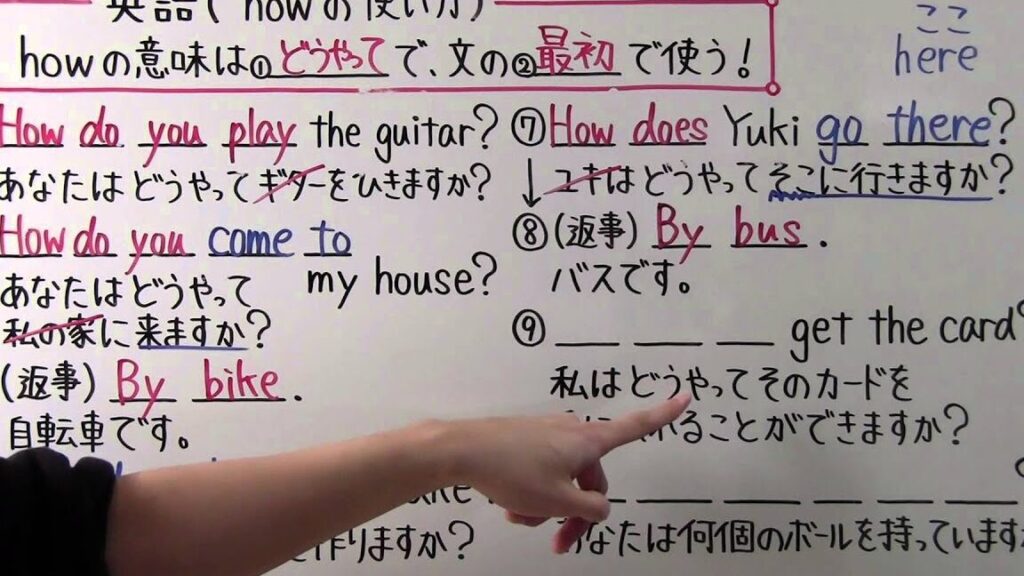 英語(howの使い方)
howの意味は①どうやってで、文の②最初で使う!
ここ
here
How do you play the guitar?
あなたはどうやってギターをひきますか?
How do you come to
my house?
あなたはどうやって
私の家に来ますか?
(返事) By bike.
自転車です。
作りますか?
⑦How does Yuki go there?
↓ユキはどうやってそこに行きますか?
⑧(返事) By bus.
バスです。
⑨ ___ ___ ___ get the card?
私はどうやってそのカードを
ることができますか?
___ ___ ___ ___ ___?
あなたは何個のボールを持っています